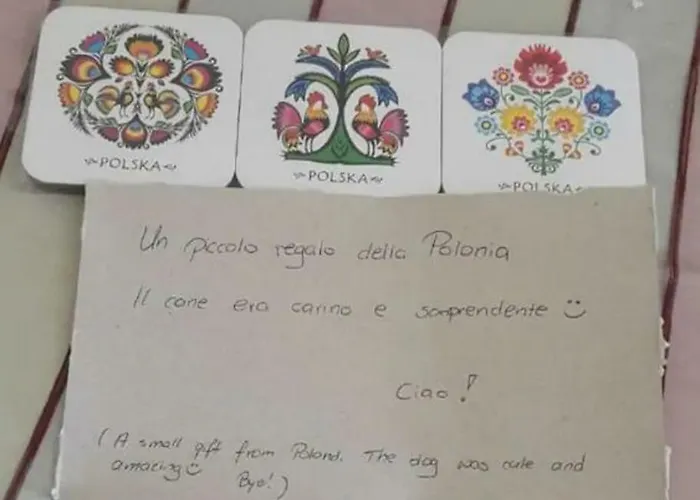 POLSKA
POLSKA
POLSKA
Un piccolo regalo della Polonia
Il cane era carino e sorprendente
Ciao!
(A small gift from Poland. The dog was cute and
amazing Bye!)